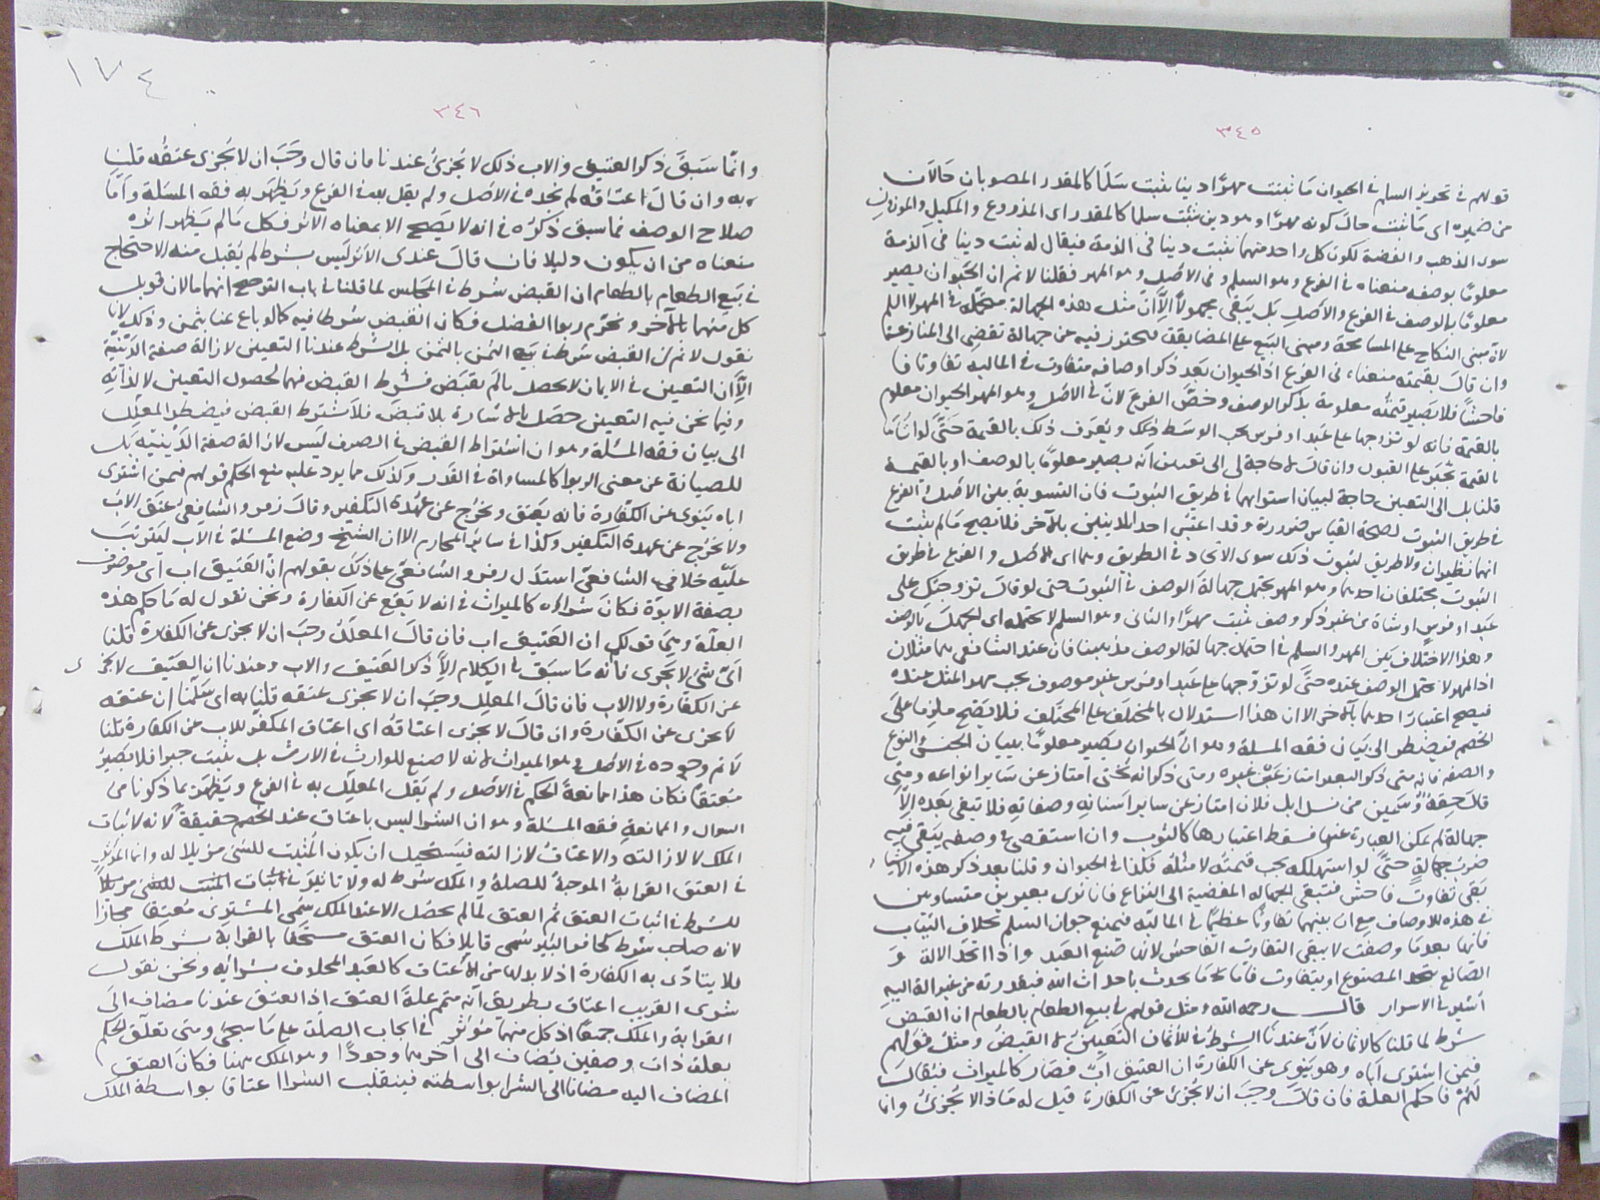 ٣٤٥
قولهم في تجويز السلم في الحيوان ما ثبت مهرا دينا يثبت سلما كالمقدر المنصوبان حالان
من ضميره اى ما يثبت حال كونه مهرا وهو دين يثبت سلما كالمقدر اى المذروع والمكيل والموزون
سوى الذهب والفضة لكون كل واحد منهما يثبت دينا في الذمة فيقال له ثبت دينا في الذمة
معلوما بوصفه منعناه في الفرع وهو السلم وفى الاصل وهو المهر فقلنا لا نم ان الحيوان يصير
معلوما بالوصف في الفرع والاصل بل يبقى مجهولا الا ان مثل هذه الجهالة متحمل في المهر لا السلم
لان مبنى النكاح على المسامحة ومبنى البيع على المضايقة فيحترز فيه عن جهالة تفضى الى المنازعة
وان قال بقيمته منعناه في الفرع اذ الحيوان بعد ذكر اوصافه متفاوت في المالية تفاوتا فا
فاحشا فلا يصير قيمته معلومة بذكر الوصف وخص الفرع لان في الاصل وهو المهر الحيوان معلوم
بالقيمة فانه لو تزوجها على عبد او فرس يجب الوسط ذلك ويعرف ذلك بالقيمة حتى لو اتاها
بالقيمة تجبر على القبول وان قال لا حاجة لى الى تعيين انه يصير معلوما بالوصف او بالقيمة
قلنا بل الى التعيين حاجة لبيان استوائهما في طريق الثبوت فان التسوية بين الاصل والفرع
في طريق الثبوت لصحة القياس ضرورية وقد اعتبر احد الدينين بالآخر فلا يصح ما لم يثبت
انهما نظيران ولا طريق لثبوت ذلك سوى الاتحاد في الطريق وهما اى الاصل والفرع في طريق
الثبوت مختلفان احدهما وهو المهر يحتمل جهالة الوصف في الثبوت حتى لو قال تزوجتك على
عبد او فرس او شاة من غير ذكر وصف يثبت مهرا والثانى وهو السلم لا يحتمله اى الجهل بالوصف
وهذا الاختلاف بين المهر والسلم في احتمال جهالة الوصف مذهبنا فان عند الشافعى هما مثلان
اذ المهر لا يحتمل الوصف عنده حتى لو تزوجها على عبد او فرس غير موصوف يجب مهر المثل عنده
فيصح اعتبار احدهما بالآخر الا ان هذا استدلال بالمختلف على المختلف فلا يصح ملزما على
الخصم فيضطر الى بيان فقه المسلة وهو ان الحيوان يصير معلوما ببيان الجنس والنوع
والصفة فانه متى ذكر البعير امتاز عن غيره ومتى ذكر انه بختى امتاز عن سائر انواعه ومتى
قال حقة سمين من نسل ابل فلان امتاز عن سائر اسنانه وصفاته فلا تبقى بعده الا
جهالة لم يمكن العبارة عنها فسقط اعتبارها كالثوب وان استقصى في وصفه يبقى فيه
ضرب جهالة حتى لو استهلكه يجب قيمته لا مثله فكذا في الحيوان وقلنا بعد ذكر هذه الاشياء
بقى تفاوت فاحش فتبقى الجهالة المفضية الى النزاع فانا نرى بعيرين متساويين
في هذه الاوصاف مع ان بينهما تفاوتا عظيما في المالية فيمنع جواز السلم بخلاف الثياب
فانها بعد ما وصفت لا يبقى التفاوت الفاحش لانها صنع العبد واذا اتحد الآلة و
الصانع يتحد المصنوع او يتفاوت فاما ما يحدث باحداث الله فبقدرته من غير آلة اليه
اشير في الاسرار قال رحمه الله ومثل قولهم في بيع الطعام بالطعام ان القبض
شرط لما قلنا كالاثمان لان عندنا الشرط في الاثمان التعيين لا القبض ومثل قولهم
فيمن اشترى اباه وهو ينوى عن الكفارة ان العتيق اب فصار كالميراث فيقال
لهم فما حكم العلة فان قال وجب ان لا يجزئ عن الكفارة قيل له ماذا لا يجزئ وانا
١٧٤
٣٤٦
وانما سبق ذكر العتيق والاب ذلك لا يجزئ عندنا فان قال وجب ان لا يجزى عتقه قلنا
به وان قال اعتاقه لم نجده في الاصل ولم يقل به في الفرع ويظهر به فقه المسئلة واما
صلاح الوصف فما سبق ذكره في انه لا يصح الا بمعناه الاثر فكل ما لم يظهر اثره
منعناه من ان يكون دليلا فان قال عندى الاثر ليس بشرط لم يقبل منه الاحتجاج
في بيع الطعام بالطعام ان القبض شرط في المجلس لما قلنا في باب الترجيح انهما مالان قوبل
كل منهما بالآخر ويحرم ربوا الفضل فكان القبض شرطا فيه كما لو باع عنا بثمن وذلك لانا
نقول لا نم ان القبض شرط في بيع الثمن بالثمن بل الشرط عندنا التعيين لازالة صفة الدينية
الا ان التعيين في الاثمان لا يحصل ما لم يقبض فشرط القبض فيها لحصول التعيين لا لذاته
وفيما نحن فيه التعيين حصل بالاشارة بلا قبض فلا يشترط القبض فيضطر المعلل
الى بيان فقه المسئلة وهو ان اشتراط القبض في الصرف ليس لازالة صفة الدينية بل
للصيانة عن معنى الربوا كالمساواة في القدر وكذلك مما يورد عليه منع الحكم قولهم فيمن اشترى
اباه ينوى عن الكفارة فانه يعتق ويخرج عن عهدة التكفير وقال زفر والشافعى عتق الاب
ولا يخرج عن عهدة التكفير وكذا في سائر المحارم الا ان الشيخ وضع المسئلة في الاب ليترتب
عليه خلاف الشافعى استدل زفر والشافعى على ذلك بقولهم ان العتيق اب اى موصوف
بصفة الابوة فكان شراؤه كالميراث في انه لا يقع عن الكفارة ونحن نقول له ما حكم هذه
العلة وهى قولك ان العتيق اب فان قال المعلل وجب ان لا يجزى عن الكفارة قلنا
اى شئ لا يجزى فانه ما سبق في الكلام الا ذكر العتيق والاب وعندنا ان العتيق لا يجزى
عن الكفارة ولا الاب فان قال المعلل وجب ان لا يجزى عتقه قلنا به اى سلمنا ان عتقه
لا يجزى عن الكفارة وان قال لا يجزى اعتاقه اى اعتاق المكفر للاب عن الكفارة قلنا
لا نم وجوده في الاصل وهو الميراث لانه لا صنع للوارث في الارث بل يثبت جبرا فلا يصير
معتقا فكان هذا ممانعة الحكم في الاصل ولم يقل المعلل به في الفرع ويظهر بما ذكرنا من
السوال والممانعة فقه المسئلة وهو ان الشرا ليس باعتاق عند الخصم حقيقة لانه لاثبات
الملك لا لازالته والاعتاق لازالته فيستحيل ان يكون المثبت للشئ مزيلا له وانما المؤثر
في العتق القرابة الموجبة للصلة والملك شرط له ولا تاثير في اثبات
للشرط في اثبات العتق ثم العتق لما لم يحصل الا عند الملك سمى المشترى معتقا مجازا
لانه صاحب شرط كحافر البئر سمى قاتلا فكان العتق مستحقا بالقرابة بشرط الملك
فلا يتادى به الكفارة اذ لا بد لها من الاعتاق كالعبد المحلوف بشرائه ونحن نقول
شرى القريب اعتاق بطريق انه متمم علة العتق اذ العتق عندنا مضاف الى
القرابة والملك جميعا اذ كل منهما مؤثر في ايجاب الصلة على ما سيجئ ومتى تعلق الحكم
بعلة ذات وصفين يضاف الى آخرهما وجودا وهو الملك ههنا فكان العتق
المضاف اليه مضافا الى الشرا بواسطته فينقلب الشرا اعتاقا بواسطة الملك